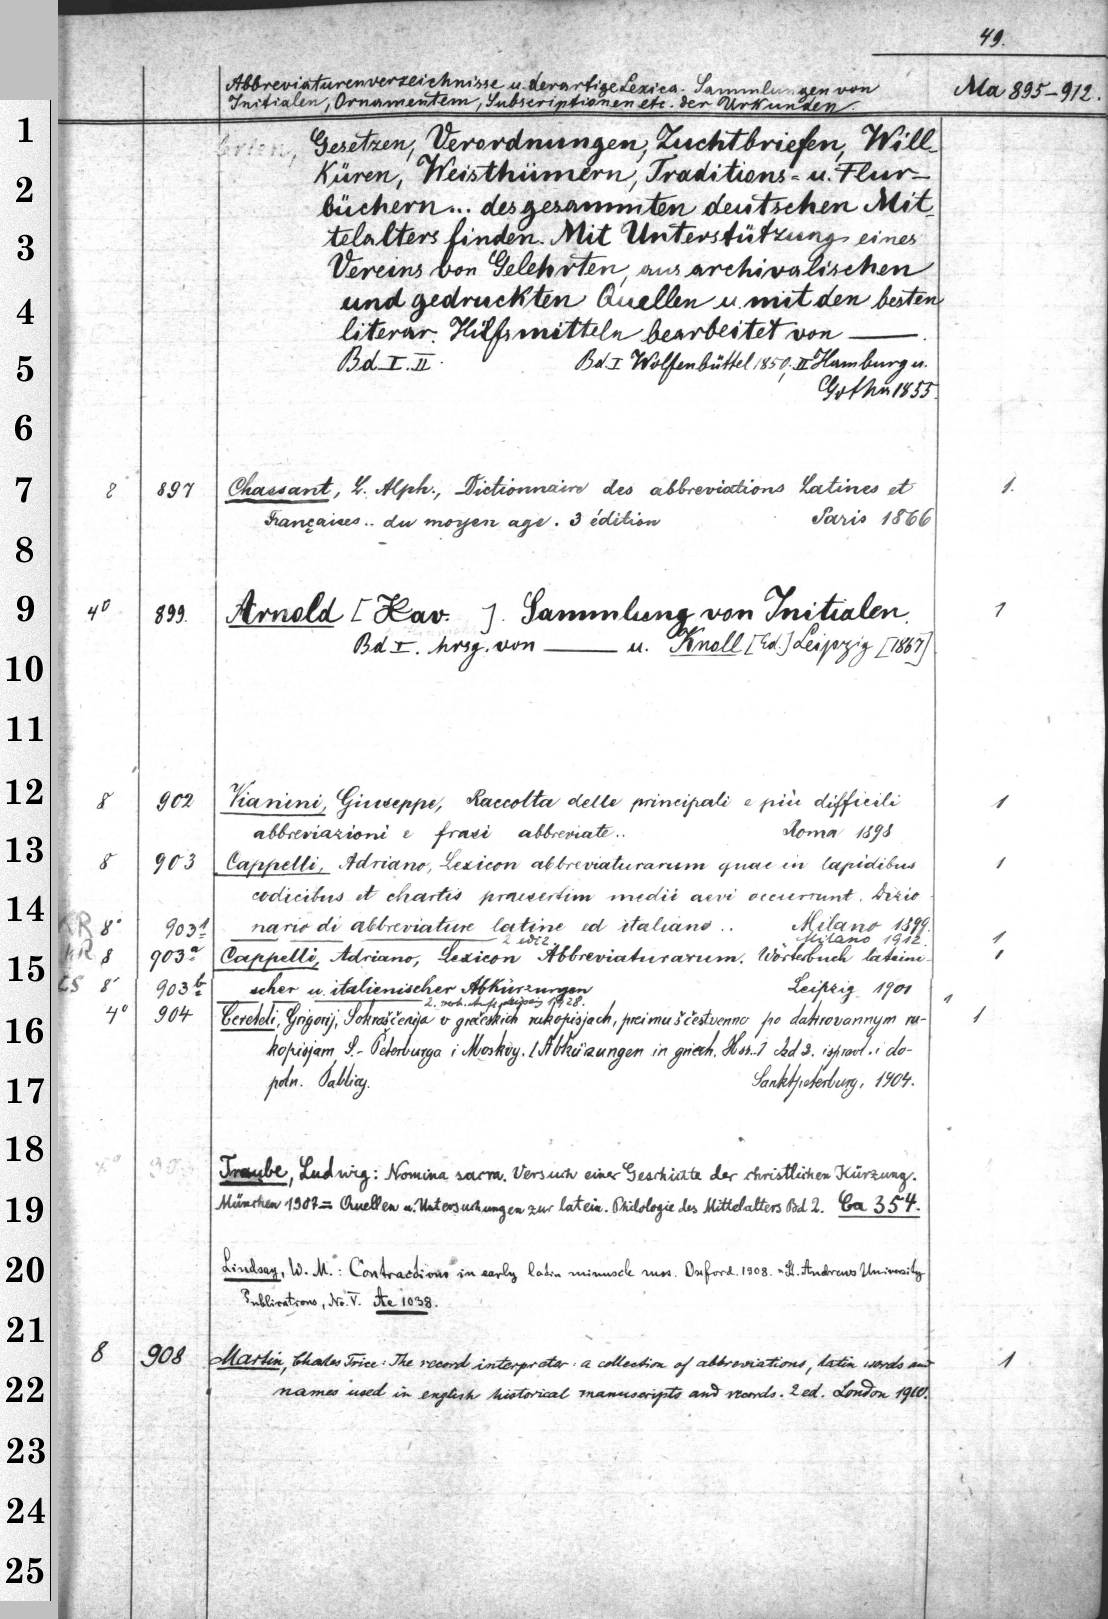 49.
Abbreviaturenverzeichnisse u. derartige Lexica. Sammlungen von
Initialen, Ornamenten, Subscriptionen etc. der Urkunden.
Ma 895–912.
1 Gesetzen, Verordnungen, Zuchtbriefen, Will-
2 Küren, Weisthümern, Traditions- u. Flur-
büchern... des gesammten deutschen Mit-
3 telalters finden. Mit Unterstützung eines
Vereins von Gelehrten, aus archivalischen
4 und gedruckten Quellen u. mit den besten
literar. Hilfsmitteln bearbeitet von ——.
5 Bd I. II. Bd I Wolfenbüttel 1850; II Hamburg u.
Gotha 1855.
6
7 8 897 Chassant, L. Alph., Dictionnaire des abbreviations Latines et 1.
Françaises.. du moyen age. 3 édition Paris 1866
8
9 4° 899. Arnold [Xav. ]. Sammlung von Initialen. 1
Bd I. hrsg. von —— u. Knoll [Ed.] Leipzig [1867]
10
11
12 8 902 Vianini, Giuseppe, Raccolta delle principali e più difficili 1
abbreviazioni e frasi abbreviate.. Roma 1898
13 8 903 Cappelli, Adriano, Lexicon abbreviaturarum quae in lapidibus 1
codicibus et chartis praesertim medii aevi occurrunt. Dizio
14 KR 8° 903¹ nario di abbreviature latine ed italiane .. Milano 1899.
2 ediz. Milano 1912. 1
KR 8 903ᵃ Cappelli, Adriano, Lexicon Abbreviaturarum. Wörterbuch lateini- 1
15 LS 8° 903ᵇ scher u. italienischer Abkürzungen Leipzig 1901
2. verb. Aufl. Leipzig 1928. 1
16 4° 904 Cereteli, Grigorij, Sokraščenija v grečeskich rukopisjach, preimuščestvenno po datirovannym ru- 1
kopisjam S.-Peterburga i Moskvy. [Abkürzungen in griech. Hss.] Izd 2. ispravl. i do-
17 poln. Tablicy. Sanktpeterburg, 1904.
18 Traube, Ludwig: Nomina sacra. Versuch einer Geschichte der christlichen Kürzung.
19 München 1907 = Quellen u. Untersuchungen zur latein. Philologie des Mittelalters Bd 2. Ca 354.
20 Lindsay, W. M.: Contractions in early latin minuscle mss. Oxford. 1908. = St. Andrews University
Publications, No. V. Ae 1038.
21 8 908 Martin, Charles Trice: The record interpreter: a collection of abbreviations, latin words and 1
22 names used in english historical manuscripts and records. 2 ed. London 1910.
23
24
25